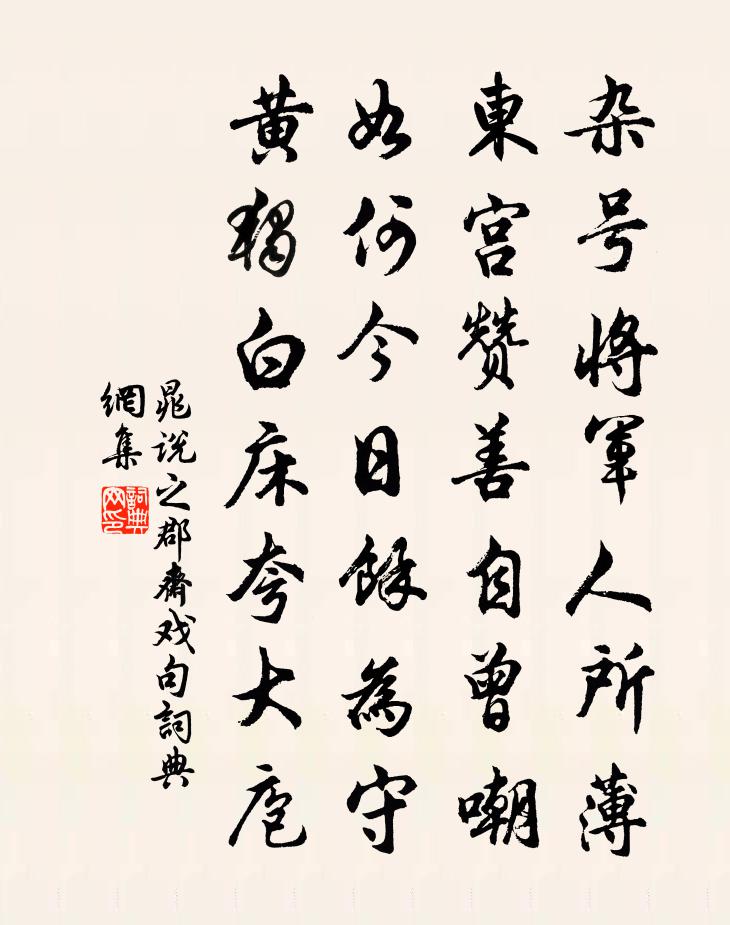 杂号将军人所薄
東宫赞善自曾嘲
如何今日餘為守
黄独白床夸大庖
晁说之郡斋戏句詞典
網集
詞典网印